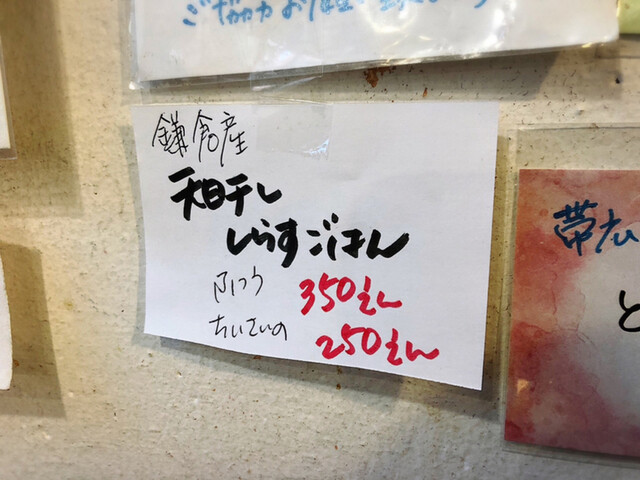 ご協力お
鎌倉産
天日干し
しらすごはん
ふつう 350えん
ちいさいの 250えん
帯広
と